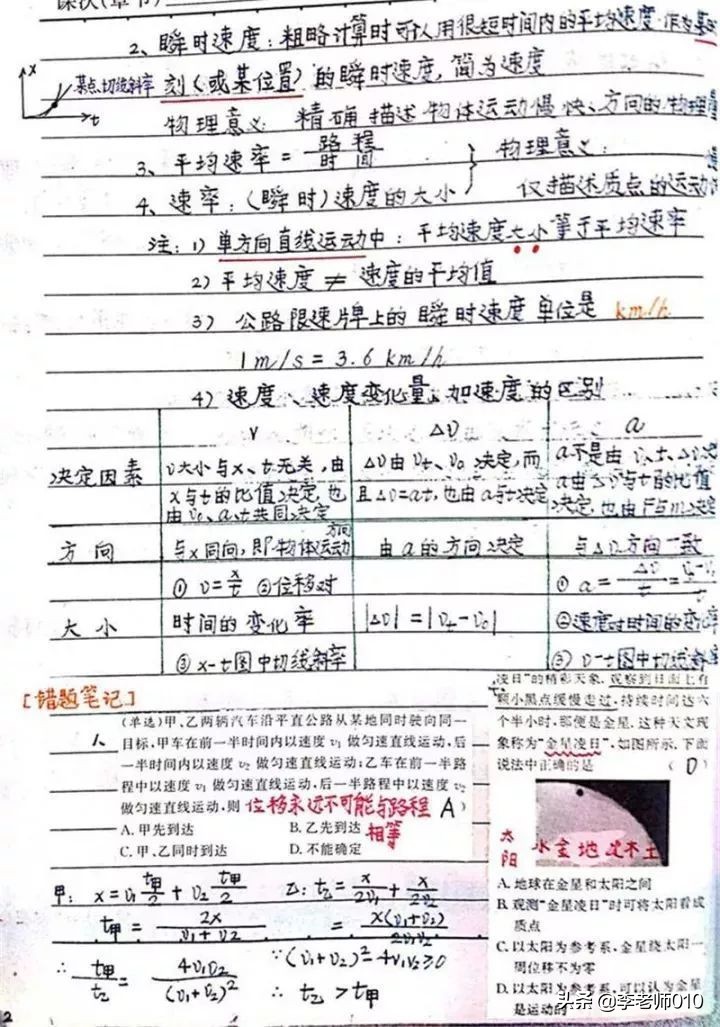 2、瞬时速度：粗略计算时可认用很短时间内的平均速度作为某
某点切线斜率
刻(或某位置)的瞬时速度，简为速度
x
t
物理意义：精确描述物体运动慢快、方向的物理量
3、平均速率 = 路程/时间
物理意义：
4、速率：(瞬时)速度的大小
仅描述质点的运动
注：1) 单方向直线运动中：平均速度大小等于平均速率
2) 平均速度 ≠ 速度的平均值
3) 公路限速牌上的瞬时速度单位是 km/h
1m/s = 3.6 km/h
4) 速度、速度变化量、加速度的区别
v Δv a
决定因素
v大小与x、t无关，由
x与t的比值决定，也
由v₀、a、t共同决定
Δv由vt、v₀决定，而
且Δv=at，也由a与t决定
a不是由v、t、Δv
a由Δv与t的比值
决定，也由F与m决定
方向
与x同向，即物体运动方向
由a的方向决定
与Δv方向一致
大小
① v=x/t ②位移对
时间的变化率
③ x-t图中切线斜率
|Δv|=|vt-v₀|
① a=Δv/t=
②速度对时间的变化率
③ v-t图中切线斜
[错题笔记]
1、
(单选)甲、乙两辆汽车沿平直公路从某地同时驶向同一
目标，甲车在前一半时间内以速度 v₁ 做匀速直线运动，后
一半时间内以速度 v₂ 做匀速直线运动；乙车在前一半路
程中以速度 v₁ 做匀速直线运动，后一半路程中以速度 v₂
做匀速直线运动，则 (A)
位移永远不可能与路程
相等
A. 甲先到达 B. 乙先到达
C. 甲、乙同时到达 D. 不能确定
甲：x=v₁ t甲/2 + v₂ t甲/2
t甲 = 2x/(v₁+v₂)
∴ t甲/t乙 = 4v₁v₂/(v₁+v₂)²
乙：t乙 = x/2v₁ + x/2v₂
= x(v₁+v₂)/2v₁v₂
∵(v₁+v₂)²-4v₁v₂≥0
∴ t乙 > t甲
凌日”的精彩天象，观察到日面上有
颗小黑点缓慢走过，持续时间达六
个半小时，那便是金星．这种天文现
象称为“金星凌日”，如图所示，下面
说法中正确的是 (D)
太阳
水金地 木土
A. 地球在金星和太阳之间
B. 观测“金星凌日”时可将太阳看成
质点
C. 以太阳为参考系，金星绕太阳一
周位移不为零
D. 以太阳为参考系，可以认为金星
是运动的
2
头条@李老师010